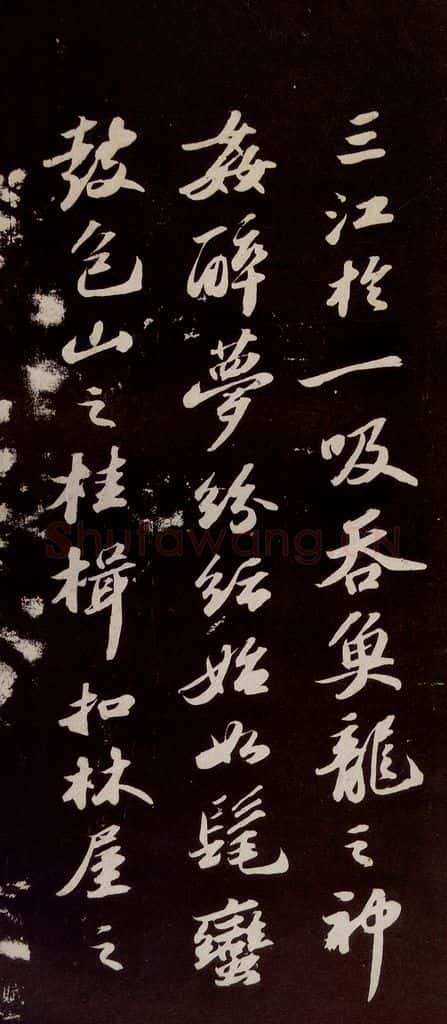 三江於一吸吞魚龍之神
姦醉夢紛紜始如髦蠻
鼓包山之桂楫扣林屋之
Shufawang.CN